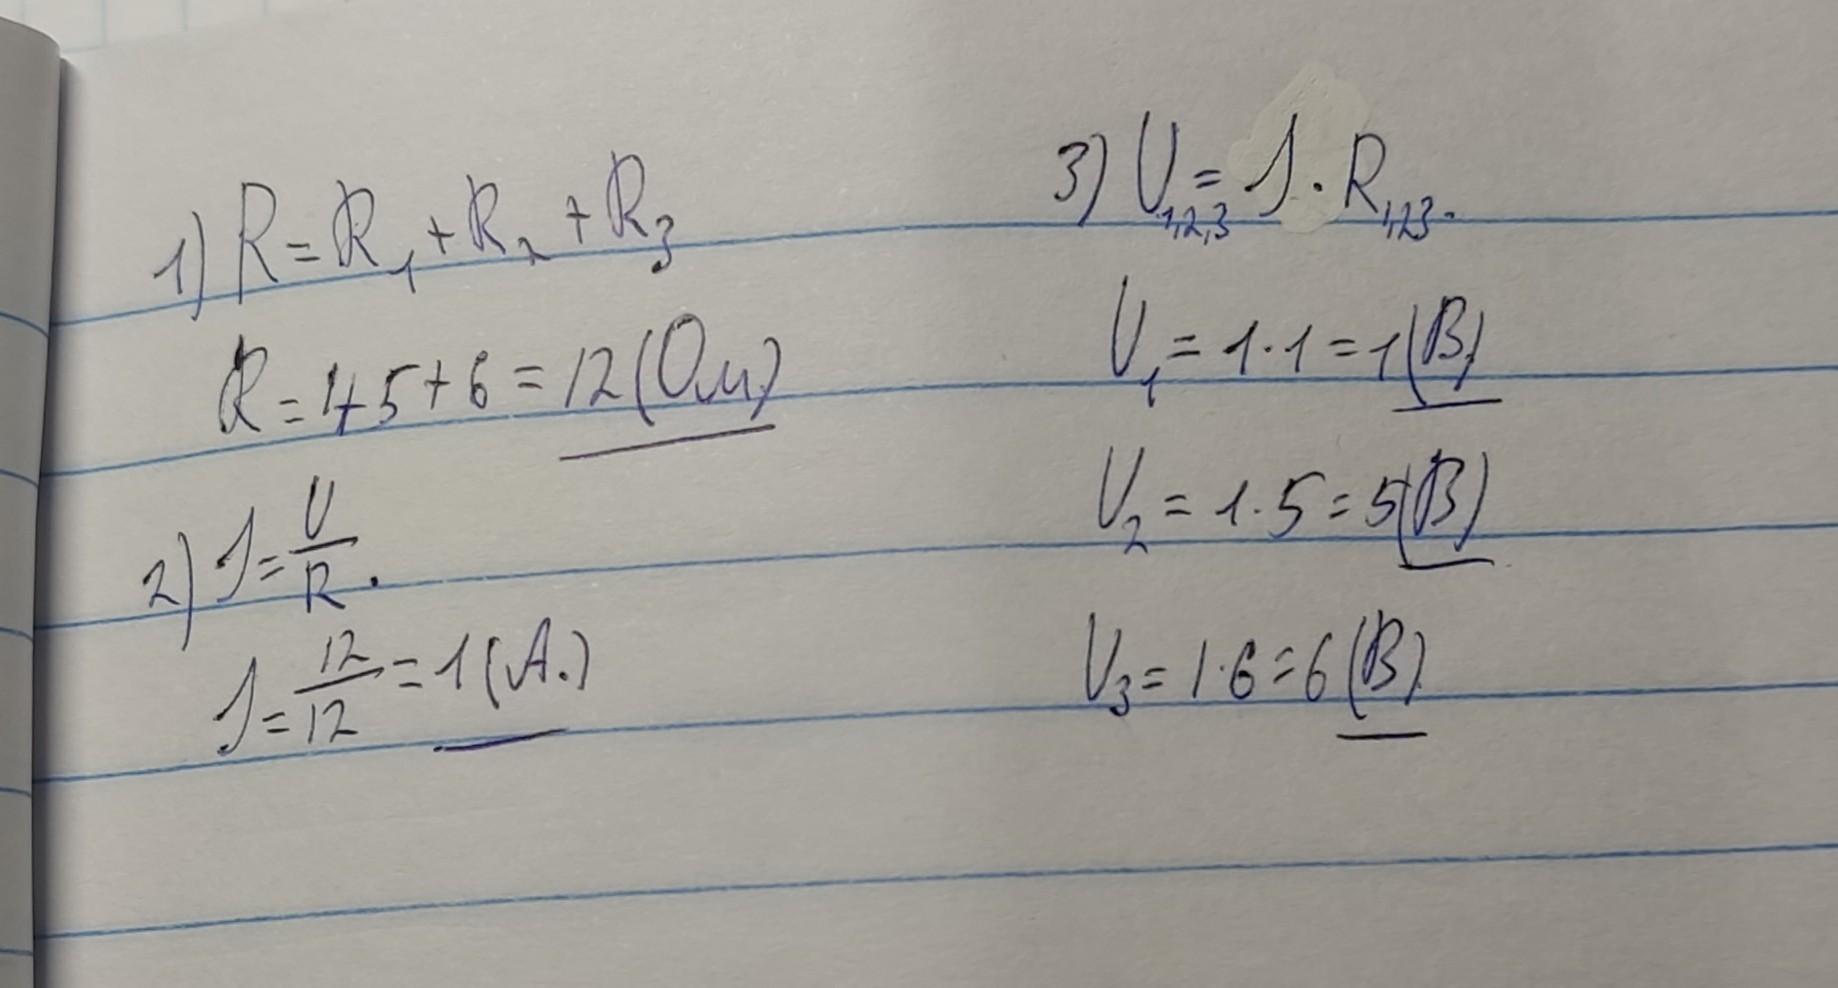 1) R = R₁ + R₂ + R₃
R = 1+5+6 = 12 (Ом)
2) J = U/R.
J = 12/12 = 1 (А.)
3) U₁,₂,₃ = J · R₁,₂₃.
U₁ = 1·1 = 1 (В)
U₂ = 1·5 = 5 (В)
U₃ = 1·6 = 6 (В)